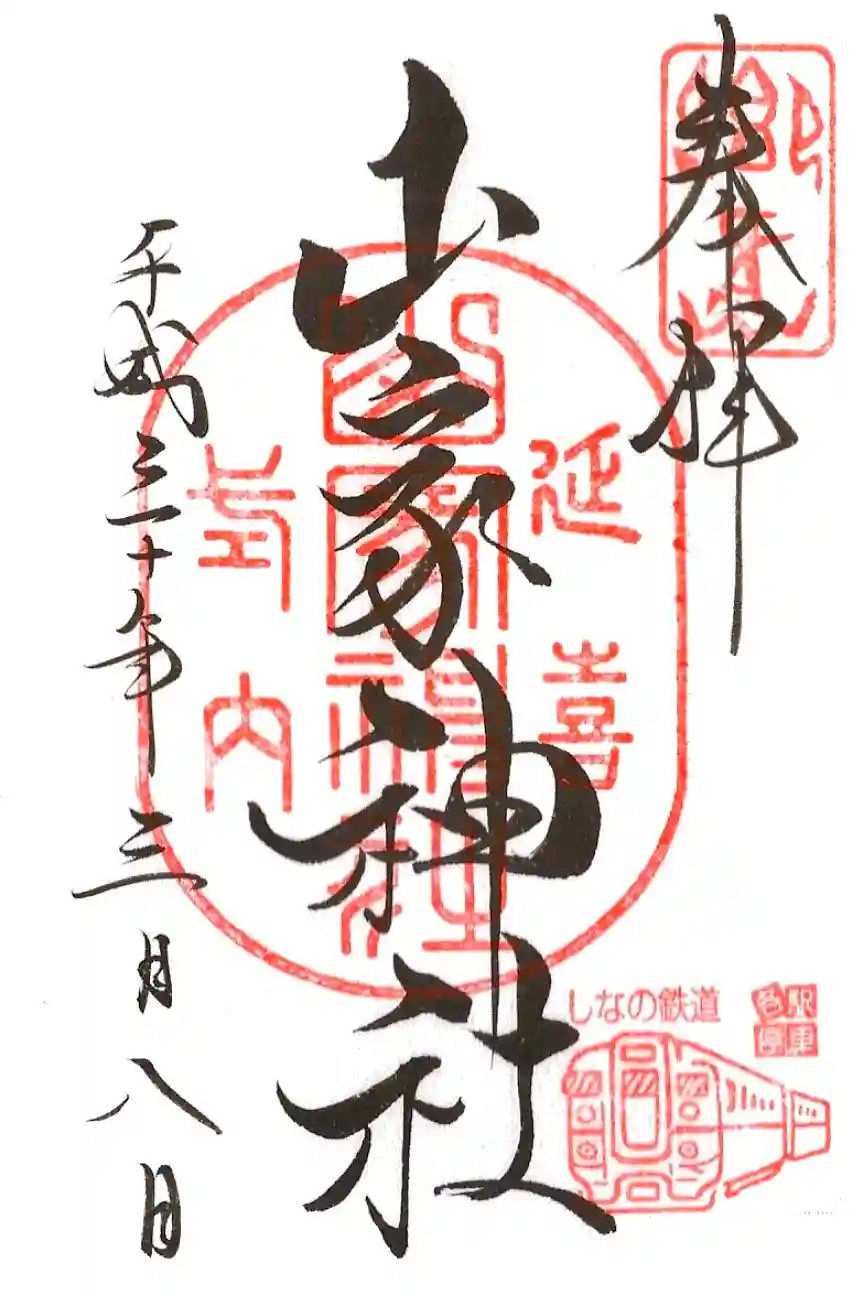 奉拝
延喜
山家神社
山家神社
式内
平成三十年三月八日
しなの鉄道
各駅
停車